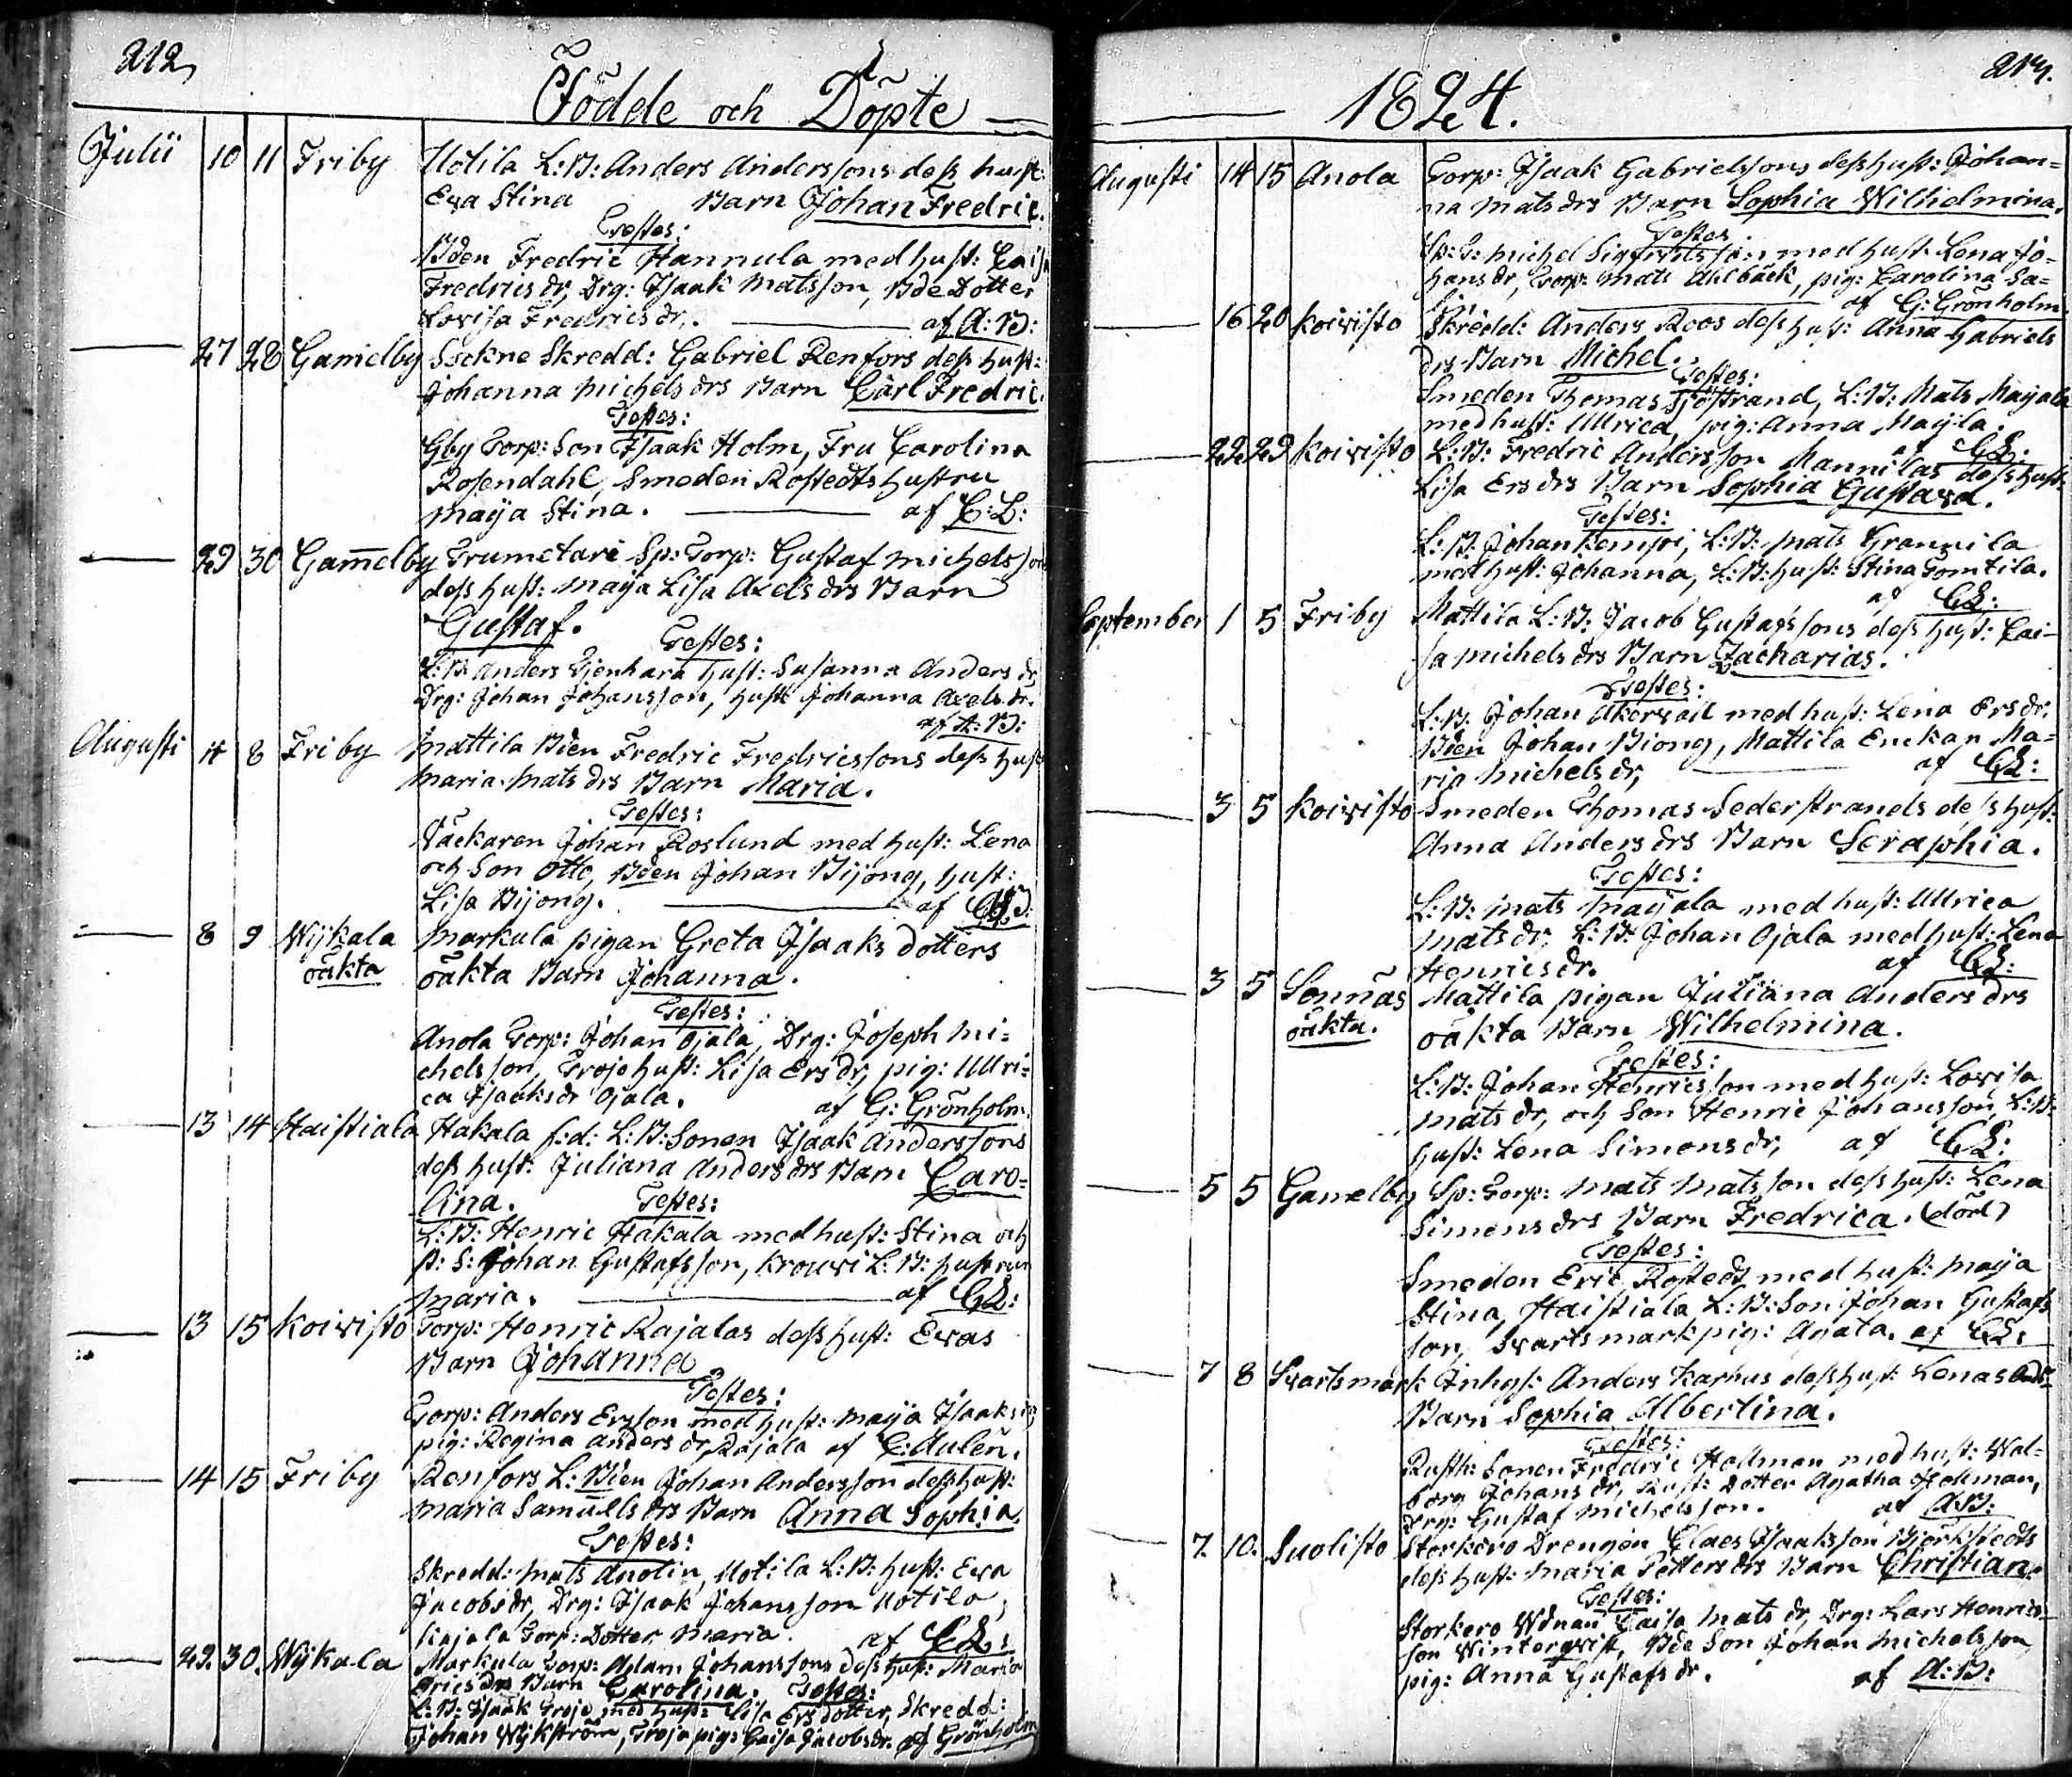 212
Födde och Döpte
Julii 10 11 Friby Uotila L:B: Anders Anderssons dess hust:
Eva Stina Barn Johan Fredric.
Testes:
Bden Fredric Hannula med hust: Caisa
Fredrics dr, Drg: Isaak Matsson, Bde Dotter
Lovisa Fredrics dr. af A:B:
27 28 Gamelby Sockne Skredd: Gabriel Renfors dess hust:
Johanna Michels drs Barn Carl Fredric.
Testes:
Gby Torp: Son Isaak Holm, Fru Carolina
Rosendahl, Smeden Rostedts hustru
Maija Stina. af C:L:
29 30 Gam̄elby Trumetare Sp: Torp: Gustaf Michelsson
dess hust: Maija Lisa Axels drs Barn
Gustaf. Testes:
L:B: Anders Gjenhara hust: Susanna Anders dr,
Drg: Johan Johansson, hust: Johanna Axels dr.
af A:B:
Augusti 4 8 Friby Mattila Bden Fredric Fredricssons dess hust
Maria Mats drs Barn Maria.
Testes:
Johan Roslund med hust: Lena
och Son Otto, Bden Johan Bijong, hust:
Lisa Bijong. af
8 9 Wijkala Markula pigan Greta Isaaks dotters
oäkta oäkta Barn Johanna.
Testes:
Anola Torp: Johan Ojala, Drg: Joseph Mi=
chelsson, Trojo hust: Lisa Ers dr, pig: Ulri=
ca Isaaksdr Ojala. af G: Grönholm.
13 14 Haistiala Hakala f:d: L:B: Sonen Isaak Anderssons
dess hust: Juliana Anders drs Barn Caro=
lina. Testes:
L:B: Henric Hakala med hust: Stina och
S: Johan Gustafsson, Krouvi L:B: hustrun
Maria. af CL:
13 15 Koivisto Torp: Henric Rajalas dess hust: Evas
Barn Johanna
Testes:
Torp: Anders Ersson med hust: Maija Isaks
pig: Regina Anders dr Rajala af C: Aulén.
14 15 Friby Renfors L: Bden Johan Andersson dess hust:
Maria Samuels drs Barn Anna Sophia.
Testes:
Skredd: Mats Anolin, Uotila L:B: hust: Eva
Jacobs dr, Drg: Isaak Johansson Uotila,
Rajala Torp: Dotter Maria. af CL:
29. 30. Wijkala Markula Torp: Adam Johanssons dess hust: Maria
Erics drs Barn Carolina. Testes:
L:B: Isaak Trojo med hust: Lisa Ers dotter, Skredd:
Johan Wijkström, Trojo pig: Caisa Jacobs dr. af Grönholm
1824.
Augusti 14 15 Anola Torp: Isaak Gabrielsons dess hust: Johan=
na Mats drs Barn Sophia Wilhelmina.
Testes.
Sp: T: Michel Sigfridsson med hust: Lena Jo=
hans dr, Torp: Mats Ahlbäck, pig: Carolina Sa=
af G: Grönholm.
16 20 Koivisto Skredd: Anders Roos dess hust: Anna Gabriels
drs Barn Michel.
Testes:
Smeden Thomas Sjöstrand, L:B: Mats Maijala
med hust: Ulrica, pig: Anna Maijla.
af CL:
22 29 Koivisto L:B: Fredric Andersson Mannilas dess hust:
Lisa Ers drs Barn Sophia Gustava.
Testes:
L:B: Johan Kempi, L:B: Mats Grannila
med hust: Johanna, L:B: hust: Stina Tomtila.
af CL:
September 1 5 Friby Mattila L:B: Jacob Gustafssons dess hust: Cai=
sa Michels drs Barn Zacharias.
Testes:
L:B: Johan med hust: Lena Ers dr,
Bden Johan Biong, Mattila Enckan Ma=
ria Michels dr, af CL:
3 5 Koivisto Smeden Thomas Sederstrands dess hust:
Anna Anders drs Barn Seraphia.
Testes:
L:B: Mats Maijala med hust: Ulrica
Mats dr, L:B: Johan Ojala med hust: Lena
Henrics dr. af CL:
3 5 Sonnäs Mattila pigan Juliana Anders drs
oäkta. oäkta Barn Wilhelmina.
Testes:
L:B: Johan Henricsson med hust: Lovisa
Mats dr, och Son Henric Johansson, L:B:
hust: Lena Simons dr, af CL:
5 5 Gamelby Sp: Torp: Mats Matsson dess hust: Lena
Simons drs Barn Fredrica. (död)
Testes:
Smeden Eric Rostedt med hust: Maija
Stina, Haistiala L:B: Son Johan Gustafs
son, Svartsmark pig: Agata. af CL:
7 8 Svartsmark Inhys: Anders Karhus dess hust: Lenas
Barn Sophia Albertina.
Testes:
Rusth: Sonen Fredric Hollman med hust: Wal=
borg Johans dr, Rust: Dotter Agatha Hollman,
Drg: Gustaf Michelsson. af A:B:
7. 10. Suolisto Storkero Drengen Claes Isaksson Björkstedts
dess hust: Maria Petters drs Barn Christian.
Testes:
Storkero Caisa Mats dr, Drg: Lars Henrics=
son Winterqvist, Bde Son Johan Michelsson,
pig: Anna Gustafs dr. af A:B: